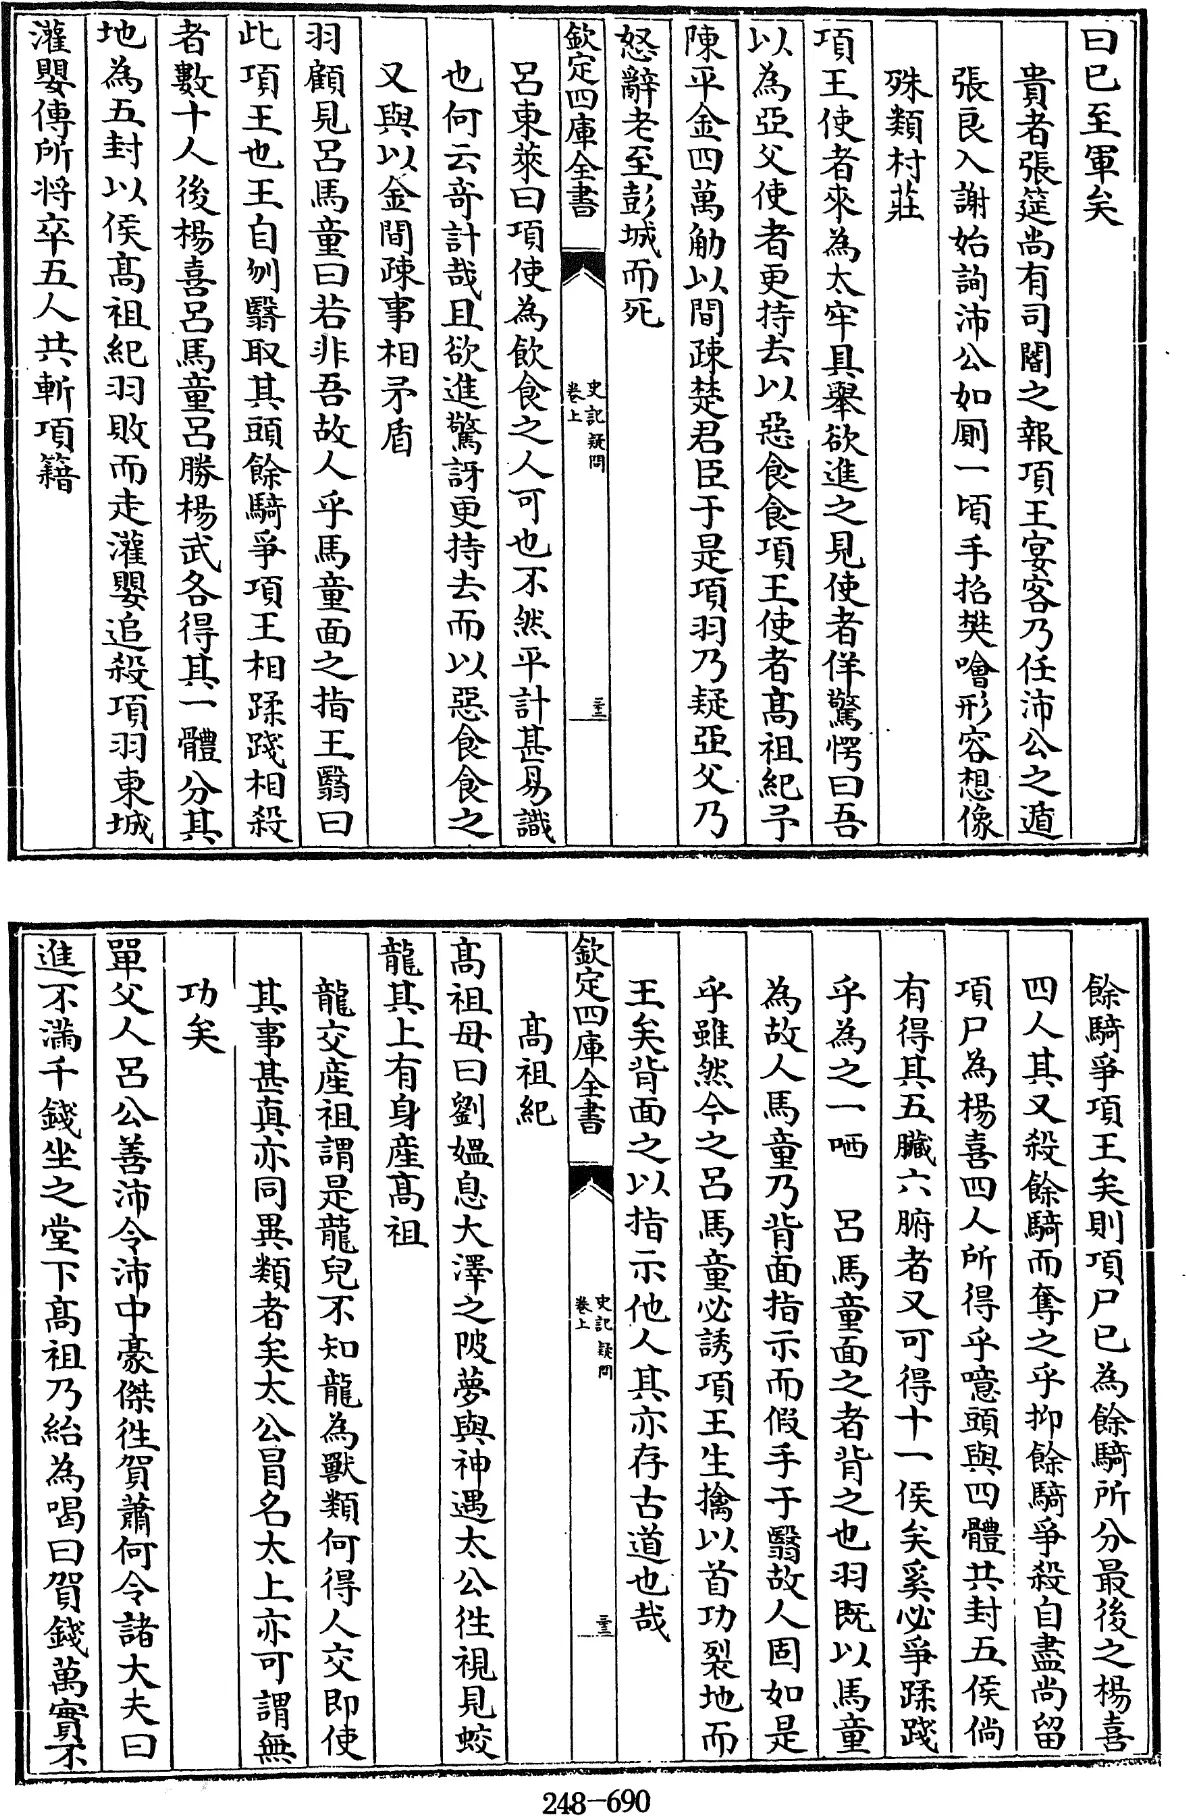 曰已至軍矣
貴者張筵尚有司閽之報項王宴客乃任沛公之遁
張良入謝始詢沛公如厠一頃手招樊噲形容想像
殊類村莊
項王使者來為太牢具舉欲進之見使者佯驚愕曰吾
以為亞父使者更持去以惡食食項王使者髙祖紀予
陳平金四萬觔以間疎楚君臣于是項羽乃疑亞父乃
怒辭老至彭城而死
欽定四庫全書
史記疑問
卷上
二十二
呂東萊曰項使為飲食之人可也不然平計甚易識
也何云竒計哉且欲進驚訝更持去而以惡食食之
又與以金間疎事相矛盾
羽顧見呂馬童曰若非吾故人乎馬童面之指王翳曰
此項王也王自刎翳取其頭餘騎爭項王相蹂踐相殺
者數十人後楊喜呂馬童呂勝楊武各得其一體分其
地為五封以侯髙祖紀羽敗而走灌嬰追殺項羽東城
灌嬰傳所將卒五人共斬項籍
餘騎爭項王矣則項尸已為餘騎所分最後之楊喜
四人其又殺餘騎而奪之乎抑餘騎爭殺自盡尚留
項尸為楊喜四人所得乎噫頭與四體共封五侯倘
有得其五臟六腑者又可得十一侯矣奚必爭蹂踐
乎為之一哂　呂馬童面之者背之也羽既以馬童
為故人馬童乃背面指示而假手于翳故人固如是
乎雖然今之呂馬童必誘項王生擒以首功裂地而
王矣背面之以指示他人其亦存古道也哉
欽定四庫全書
史記疑問
卷上
二十三
髙祖紀
髙祖母曰劉媼息大澤之陂夢與神遇太公徃視見蛟
龍其上有身産髙祖
龍交産祖謂是龍兒不知龍為獸類何得人交即使
其事甚真亦同異類者矣太公冒名太上亦可謂無
功矣
單父人呂公善沛令沛中豪傑徃賀蕭何令諸大夫曰
進不滿千錢坐之堂下髙祖乃紿為謁曰賀錢萬實不
248-690